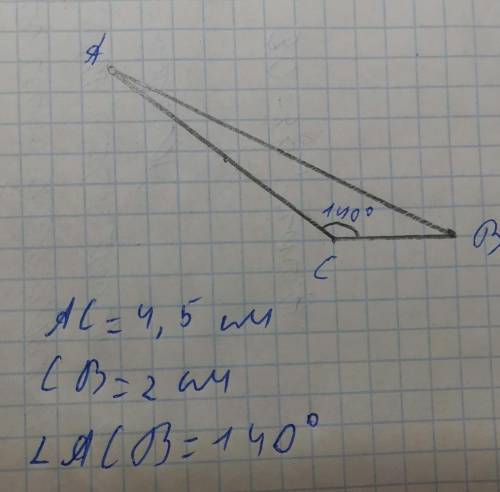 A
140°
B
C
AC = 4,5 см
CB = 2 см
∠ACB = 140°